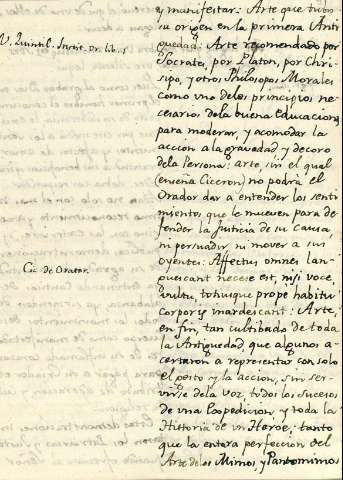 y manifestar: Arte que tubo
su origen en la primera Anti
guedad: Arte recomendado por
V. Quintil. Instit. or. lib. 1
Socrates, por Platon, por Chri-
sipo, y otros Philosophos Morales
como uno delos principios ne-
cesarios dela buena Educacion,
para moderar, y acomodar la
accion ala gravedad y decoro
dela Persona: arte, sin el qual
(enseña Ciceron) no podrá el
Orador dar a entender los senti
mientos que le mueven para de
fender la Justicia de su causa,
ni persuadir, ni mover a sus
oyentes: Affectus omnes lan-
Cic. de Orator.
guescant necese est, nisi voce,
vultu, totiusque prope habitu
Corporis inardescant: Arte,
en fin, tan cultibado de toda
la Antiguedad que algunos a-
certaron a representar con solo
el gesto y la accion, sin ser-
virse dela voz, todos los sucesos
de una Expedicion, y toda la
Historia de un Heroe; tanto
que la entera perfeccion del
Arte de los Mimos, y Pantomimos